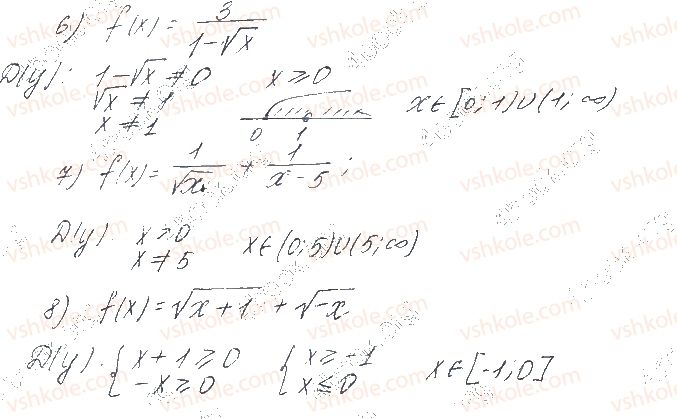 6) f(x) = 3/(1-√x)
D(y): 1-√x ≠ 0 x ≥ 0
√x ≠ 1
x ≠ 1 0 1 x ∈ [0; 1) ∪ (1; ∞)
7) f(x) = 1/√x + 1/(x-5);
D(y) x > 0
x ≠ 5 x ∈ (0; 5) ∪ (5; ∞)
8) f(x) = √(x+1) + √(-x)
D(y). { x+1 ≥ 0 { x ≥ -1
-x ≥ 0 x ≤ 0 x ∈ [-1; 0]